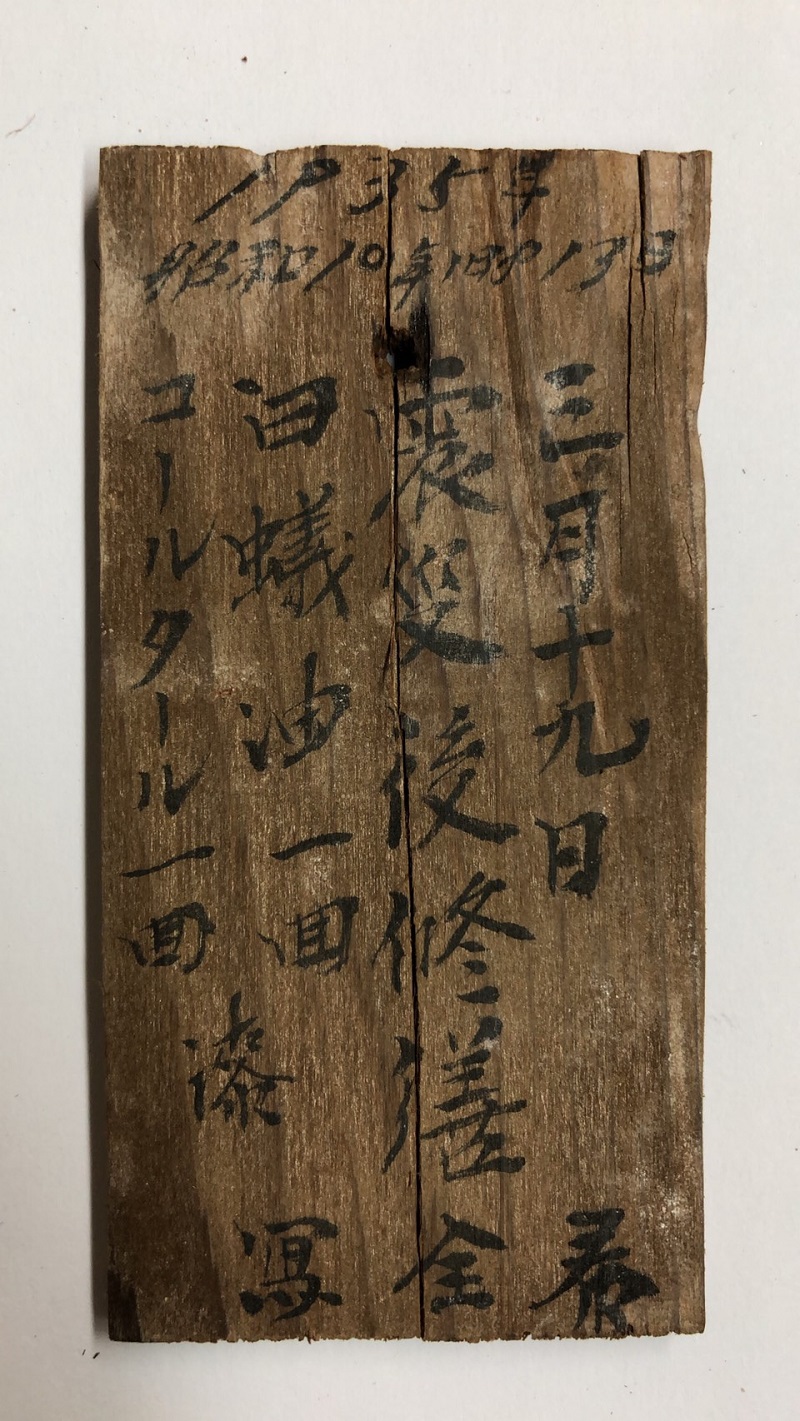 1935年
昭和10年 13日
三月十九日
震災後修繕
白蟻油一回
コールタール一回
漆
寫